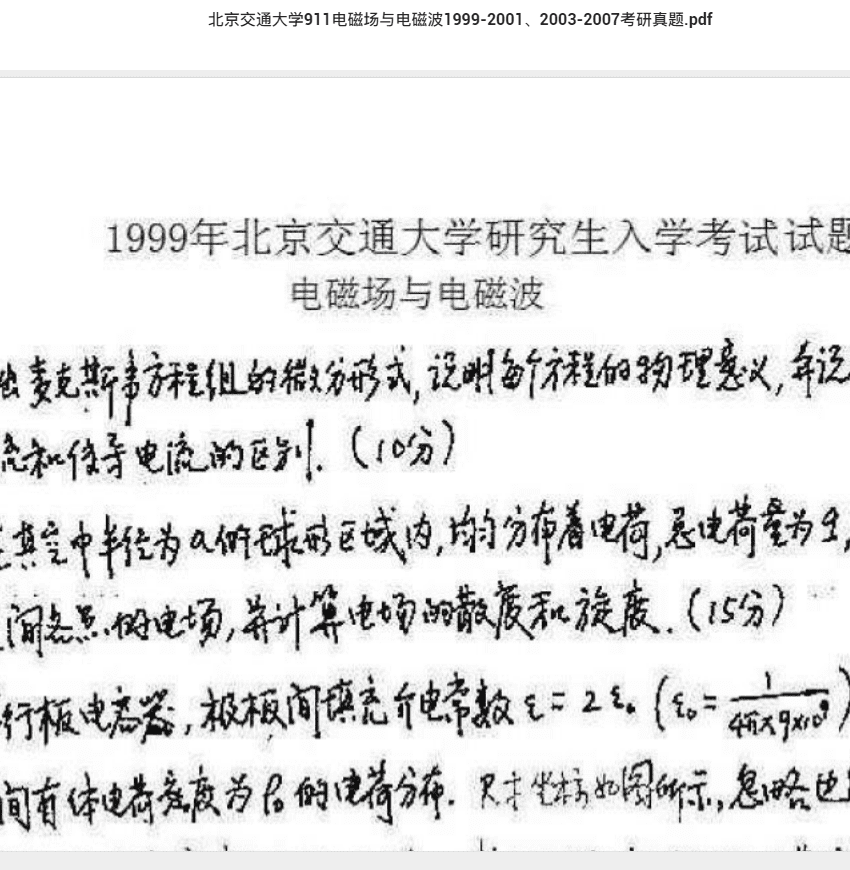 北京交通大学911电磁场与电磁波1999-2001、2003-2007考研真题.pdf
1999年北京交通大学研究生入学考试试题
电磁场与电磁波
麦克斯韦方程组的微分形式,说明每个方程的物理意义,并说
和传导电流的区别.(10分)
真空中半径为a的球形区域内,均匀分布着电荷,总电荷量为q,
间各点的电场,并计算电场的散度和旋度.(15分)
行板电容器,极板间填充介电常数ε=2ε₀(ε₀=1/4π×9×10⁹)
间有体电荷密度为ρ₀的电荷分布.尺寸坐标如图所示,忽略边